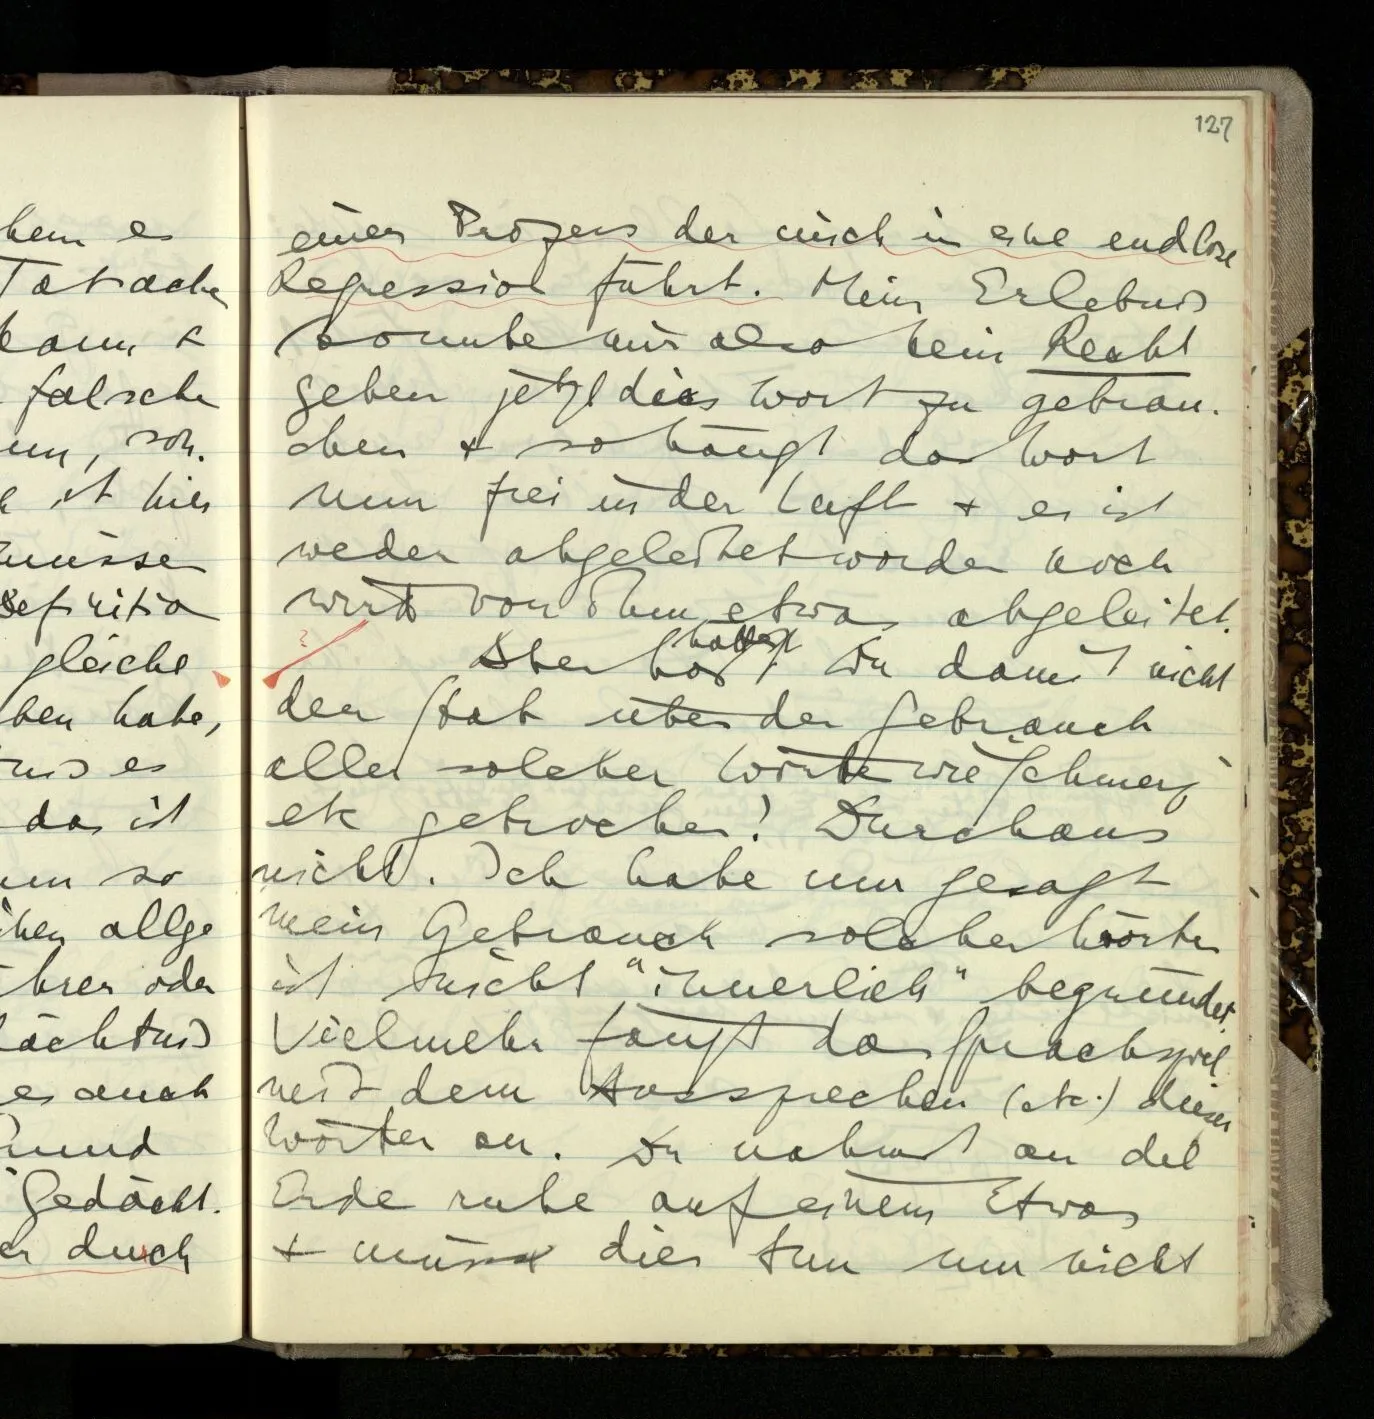 127
hem es
Tatsache
kann &
falsche
nn, son.
ist hier
müsse
Definitio
gleiche
ben habe,
nis es
das ist
um so
ihen allge
hrer oder
dächtnis
es auch
rund
Gedächt.
er durch
einen Prozess der mich in eine endlose
Regression führt. Mein Erlebnis
konnte mir also kein Recht
geben jetzt dies Wort zu gebrau.
chen & so hängt das Wort
nun frei in der Luft & es ist
weder abgeleitet worden noch
wird von ihm etwas abgeleitet.
hattest
Aber hast Du damit nicht
den Stab über den Gebrauch
aller solcher Wörter wie Schmerz
etc gebrochen! Durchaus
nicht. Ich habe nur gesagt
mein Gebrauch solcher Wörter
ist nicht "innerlich" begründet.
Vielmehr fängt das Sprachspiel
mit dem Aussprechen (etc.) dieser
Wörter an. Du nahmst an die
Erde ruhe auf einem Etwas
& müsse dies tun um nicht